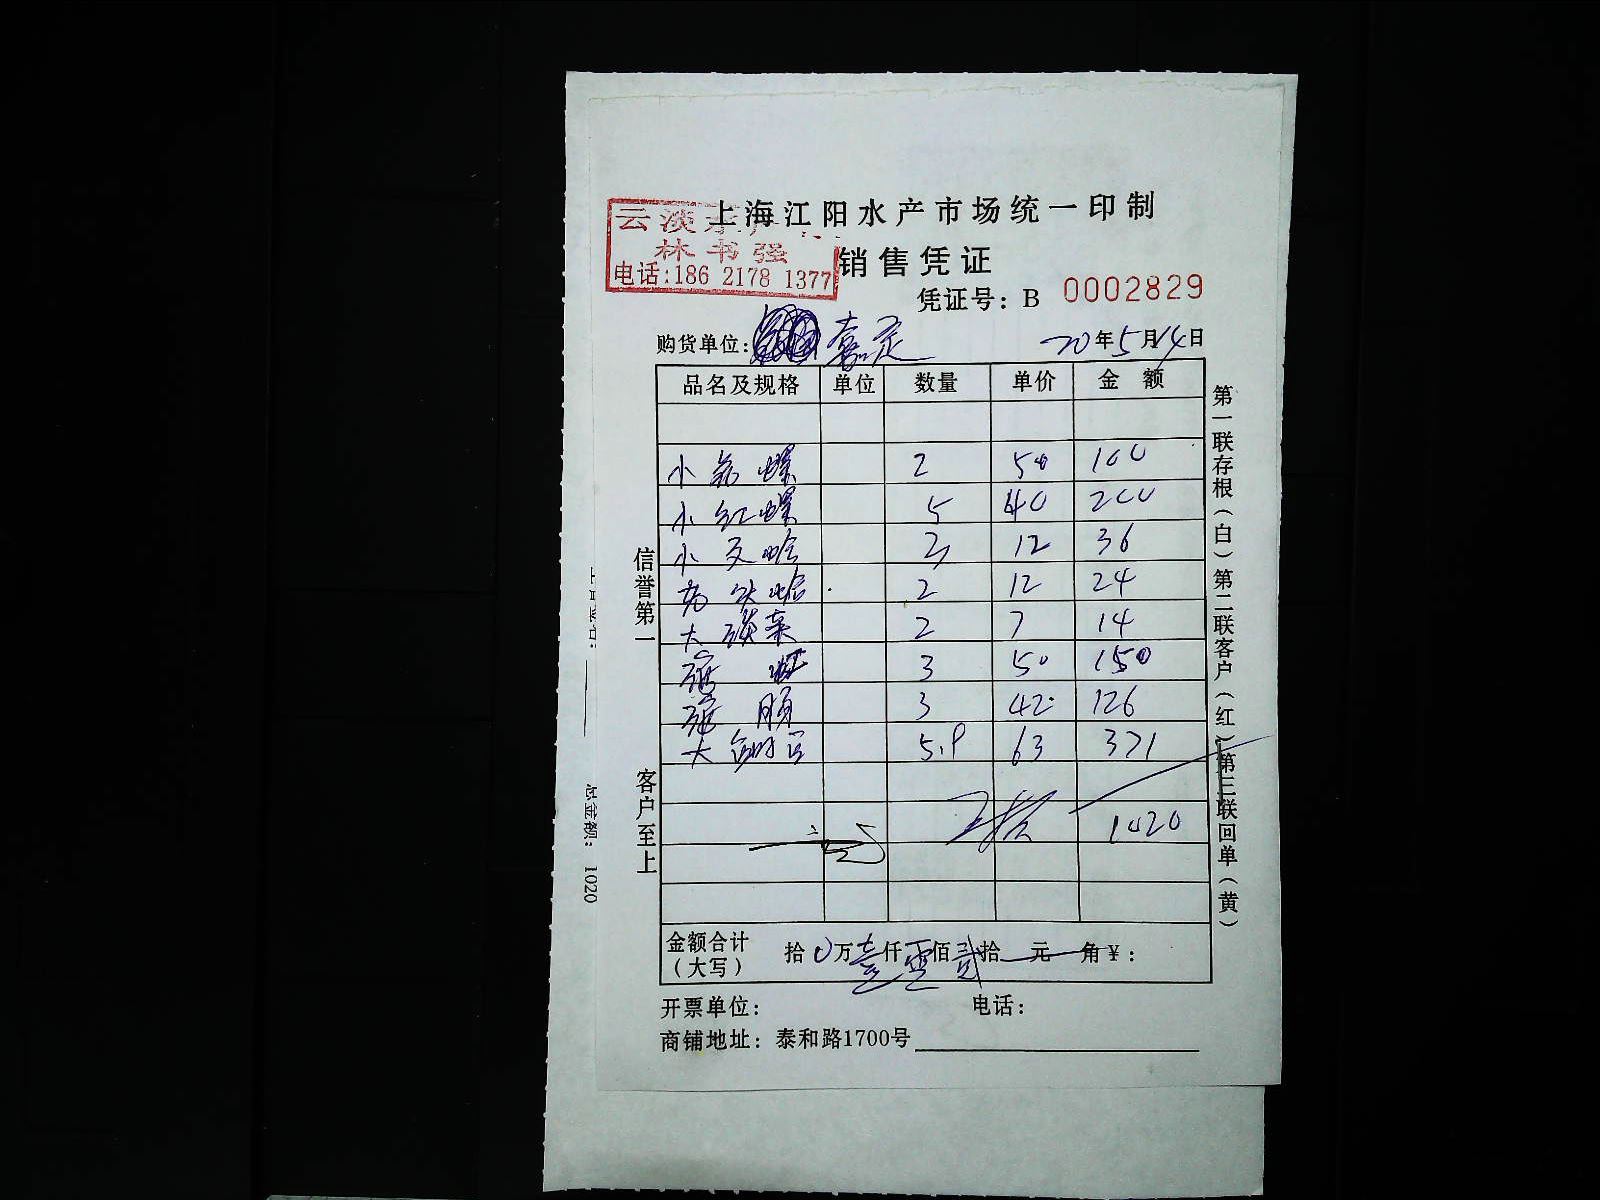 上海江阳水产市场统一印制
云淡水产
林书强
电话:186 2178 1377
销售凭证
凭证号: B 0002829
购货单位: 嘉定 20年5月14日
品名及规格 单位 数量 单价 金额
小 螺 2 50 100
小红螺 5 40 200
小 蛤 3 12 36
蛤 2 12 24
大淡菜 2 7 14
3 50 150
3 42 126
大 5.9 63 371
1020
金额合计(大写) 拾0万壹仟零佰贰拾 元 角¥:
开票单位: 电话:
商铺地址: 泰和路1700号
信誉第一
客户至上
第一联存根(白)第二联客户(红)第三联回单(黄)
总金额: 1020